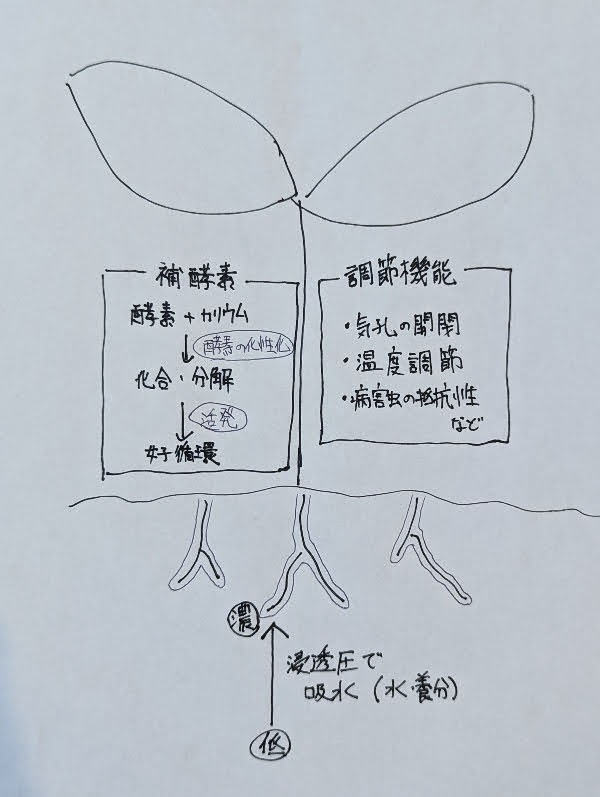 補酵素
酵素 + カリウム
酵素の化性化
化合・分解
活発
好循環
調節機能
・気孔の開閉
・温度調節
・病害虫の抵抗性
など
濃
浸透圧で
吸水（水・養分）
低